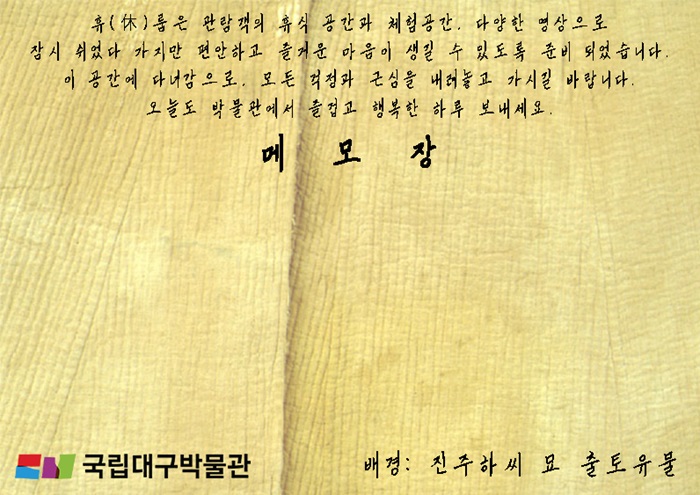 휴(休)룸은 관람객의 휴식 공간과 체험공간, 다양한 영상으로
잠시 쉬었다 가지만 편안하고 즐거운 마음이 생길 수 있도록 준비 되었습니다.
이 공간에 다녀감으로, 모든 걱정과 근심을 내려놓고 가시길 바랍니다.
오늘도 박물관에서 즐겁고 행복한 하루 보내세요.
메 모 장
국립대구박물관
배경: 진주하씨 묘 출토유물